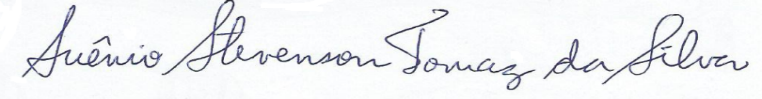 Suênio Stevenson Tomaz da Silva